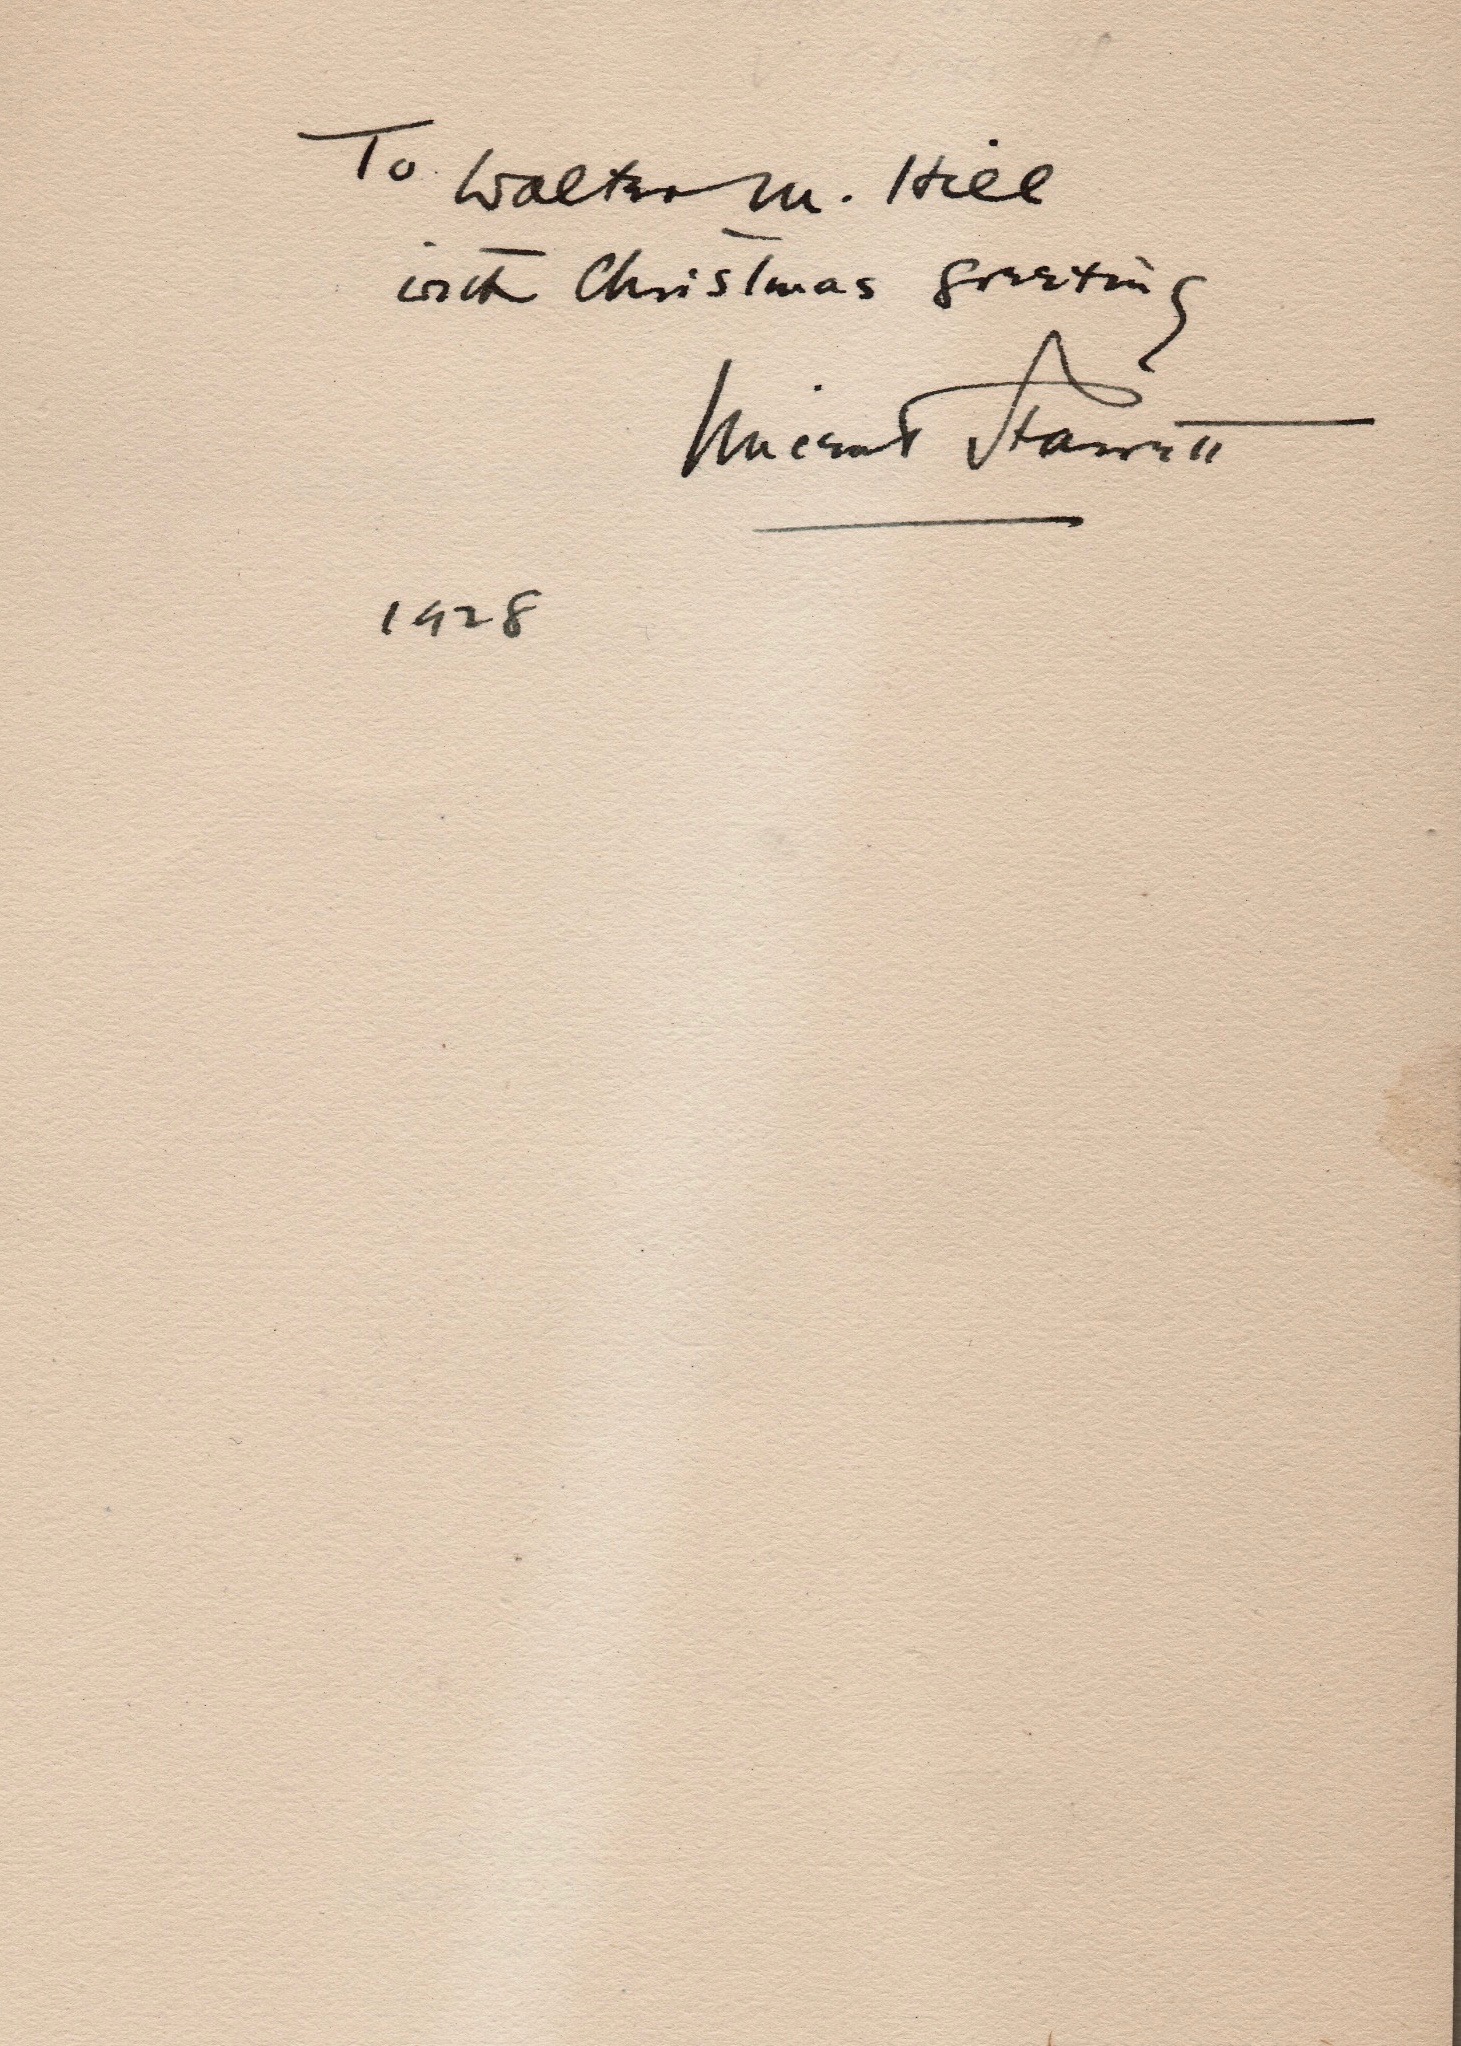 To Walter M. Hill
with Christmas greeting
Vincent Starrett
1928